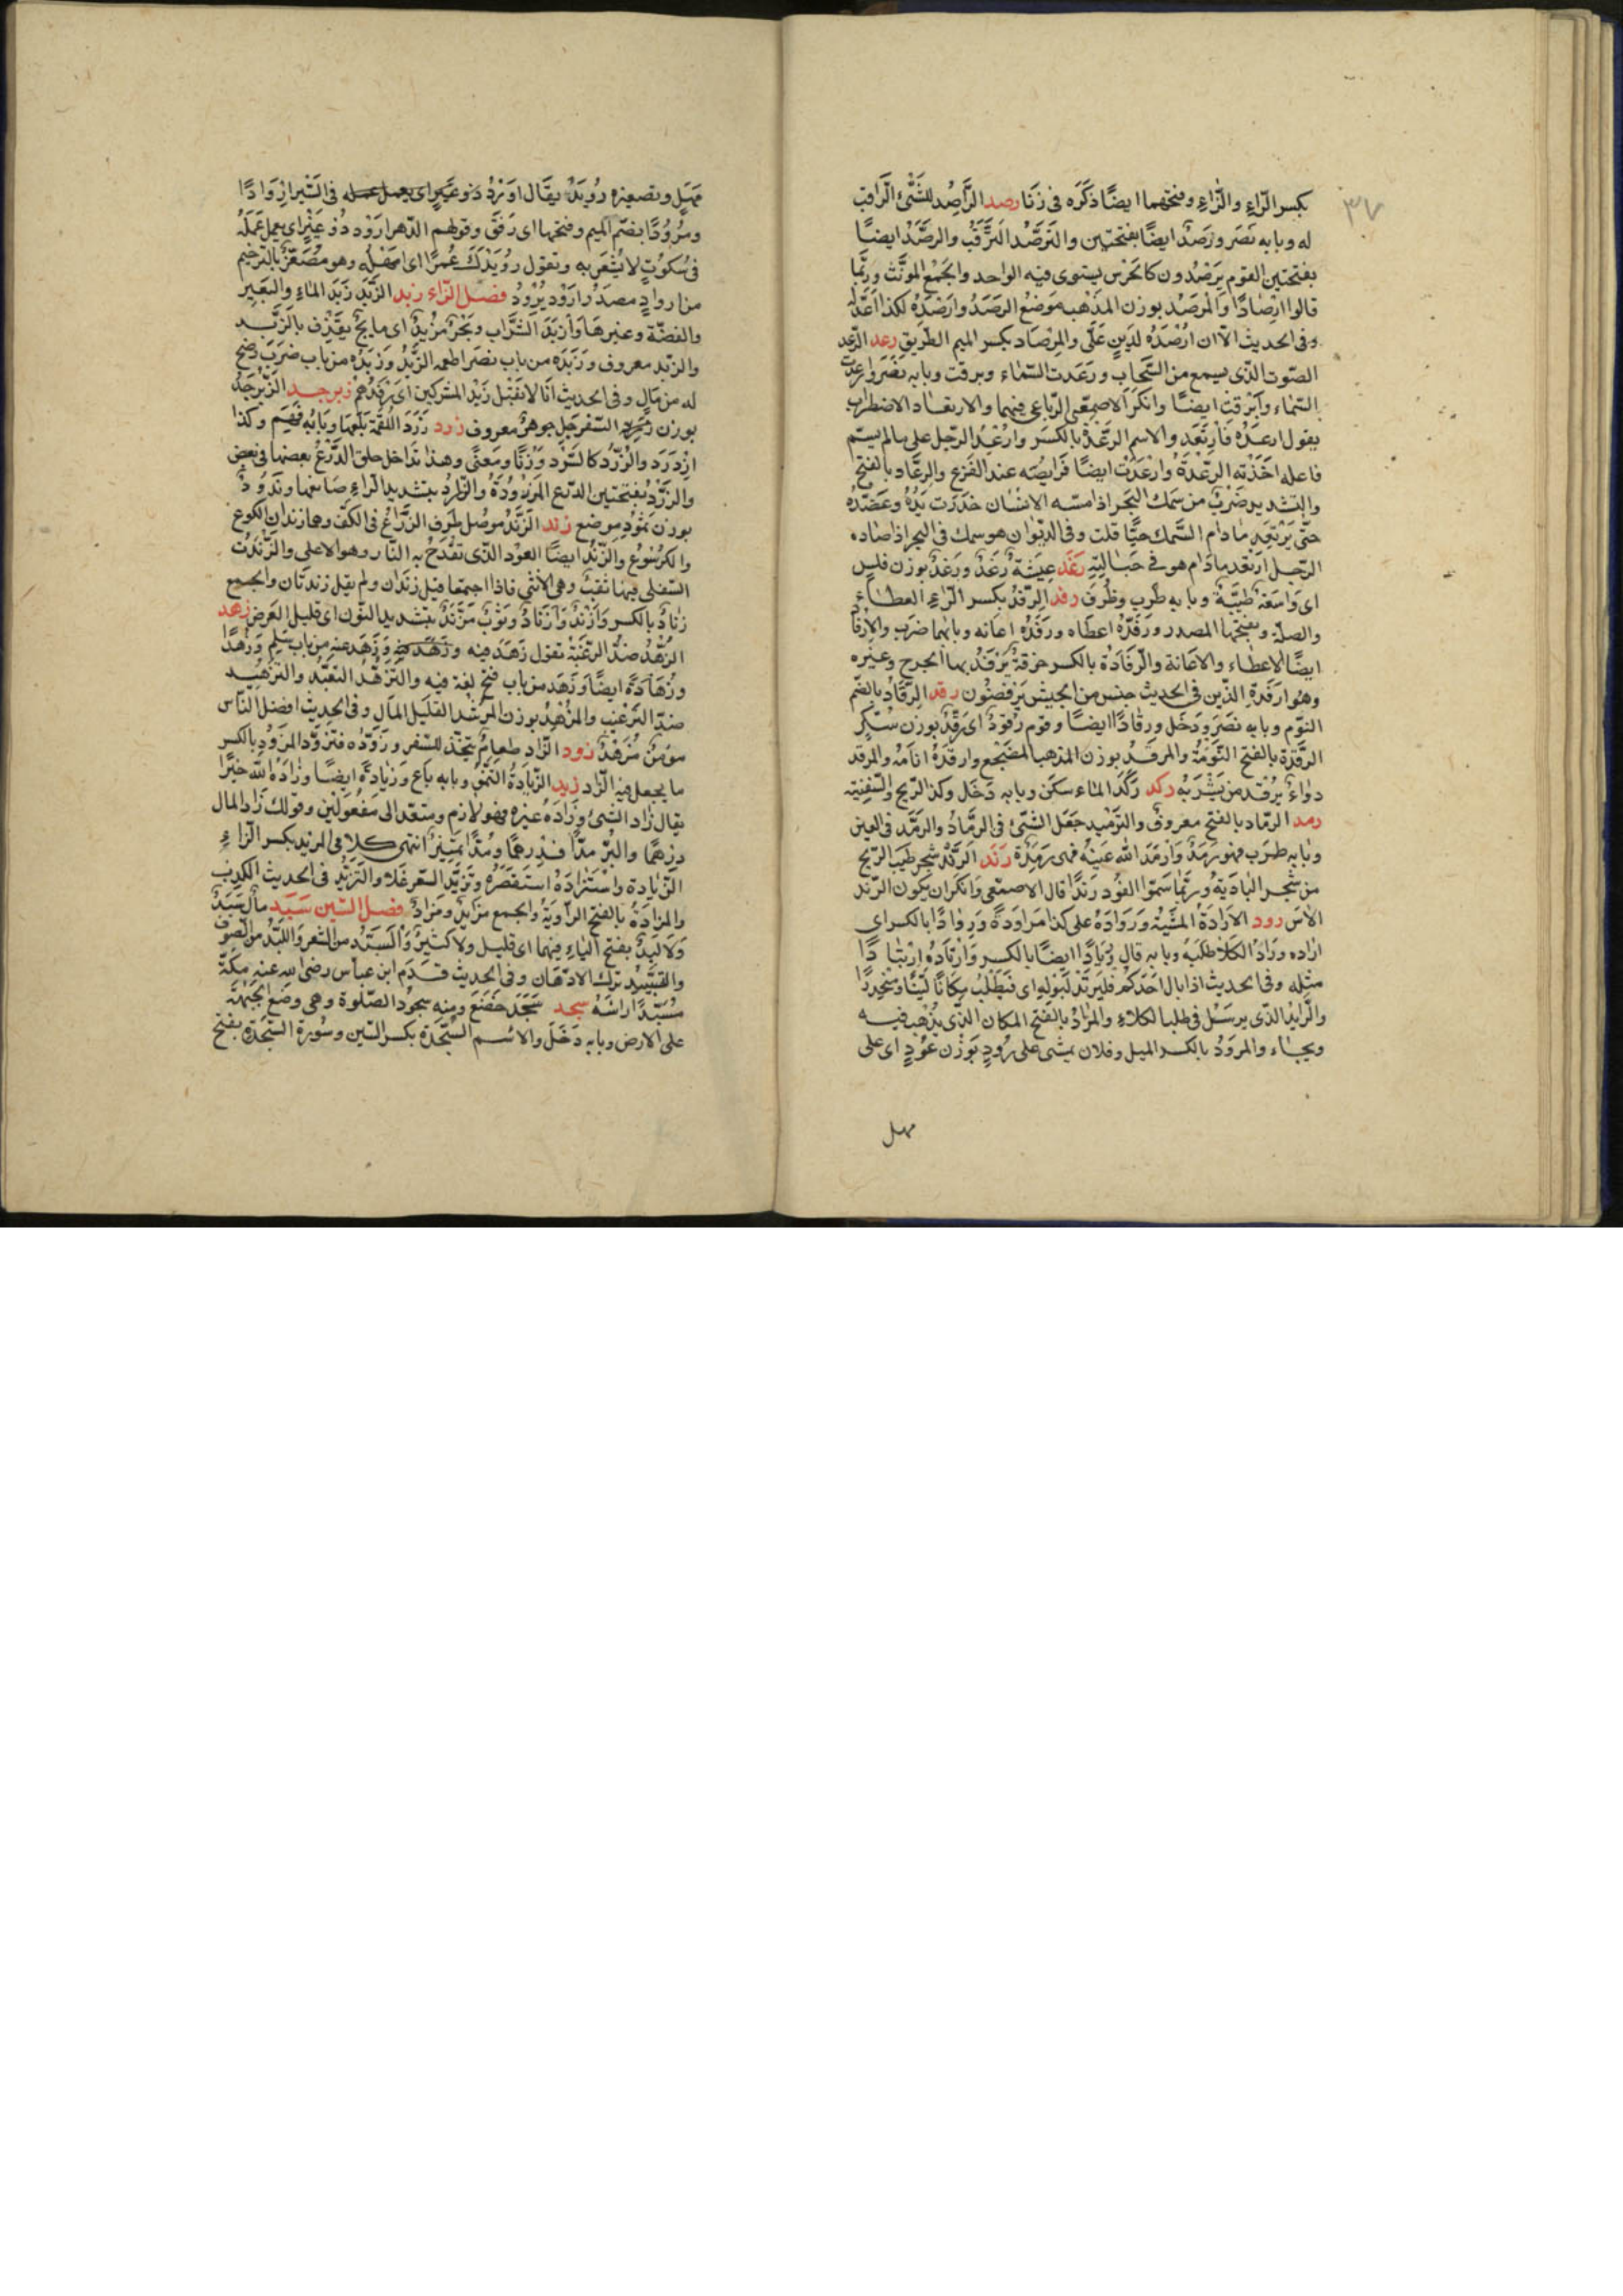 ٣٧
بكسر الرّاءِ والزّاءِ وفتحهما ايضًا ذكَرَه فى زنا رصد الرَّاصِد للشَّئ الرَّاقب
له وبابه نَصَر ورَصَدٌ ايضًا بفتحتين والتَرصّد الترَّقُب والرصَّدُ ايضًا
بفتحتين القوم يَرصُدون كالحَرس يستوى فيه الواحد والجمْع المونَّث وربّما
قالوا ارْصادًا والمرصَد بوزن المذهب مَوضعُ الرصَدُ وارْصَدَه لكذا اَعَدَّله
وفى الحديث الّا ان ارْصدَه لدَينٍ عَلَّى والمِرْصَاد بكسر الميم الطّريق رعد الرّعد
الصّوت الذّى يسمع من السَّحاب ورَعَدت السّماء وبرقت وبابه نَصَر وارعَدت
السّماء واَبْرقت ايضًا وانكَرَ الاصمعّى الرّباعى فيهما والارتعاد الاضطراب
يقول ارعدَه فارتَعَد والاسم الرعَّدَة بالكَسر وارْعِدَ الرّجل على مالم يسّم
فاعله اخَذَته الرعّدَة وارْعَدَت ايضًا فَرايصُه عند الفَزع والرعَّاد بالفتح
والتشديد ضَربٌ من سَمك البَحر اذا مسّه الانسان خدَرَت يَدُهُ وعَضُدُه
حتّى يَرتَعِد مَا دام السَّمك حيًّا قلت وفى الديوان هو سمك فى البحر اذا صَاده
الرّجل ارتعَد مادَام هو فى حَبَالتِه رغَد عيشَةٌ رَغَدٌ ورَغْدٌ بوزن فلس
اى واسعَة طيّبَة وبابه طَرب وظرف رفد الرّفدُ بكسر الرّاءِ العطاء
والصلة وبفتحها المصدر ورَفَدَه اعطاه ورَفَدَه اعانه وبابُهما ضرَب والارفاد
ايضًا الاعطاء والاعانة والرّفَادَة بالكسر خرقَةٌ يَرْفَدُ بها الجرح وغيره
وهُوا رَفَدَةِ الذّين فى الحديث جنس من الحبش يَرقصُون رقد الرّقَاد بالضّم
النوّم وبابه نصَر ودَخَل ورقَادًا ايضًا وقوم رُقودٌ اى رقّدٌ بوزن سُكّر
الرقَدة بالفتح النّومَة والمرقَدُ بوزن المذهب المضجع وارقَدَهُ انامَهُ والمرقد
دواءٌ يُرقد من يَشْربُه ركد رَكَدَ الماء سكَن وبابه دَخَل وكذا الرّيح والسَّفينة
رمد الرّماد بالفتح معروف والتّرميد جَعَل الشَّئ فى الرمَّادُ والرمَد فى العين
وبابه طَرب فهو رَمِدٌ وارمَدَ الله عَينُه فهى رَمِدة رَند الرّندْ شجر طيّب الرّيح
من شَجر البَادية ورُبَّما سَمّوا العُود رَنْدًا قال الاصمعى وانكران يكون الرّند
الاسَ رود الارَادَة المشيّة ورَاوَدَهُ على كذا مَراوَدَةً ورِوادًا بالكسر اى
اراده ورادَ الكَلاَ طلَبَه وبابه قال وريَادًا ايضًا بالكسر وَارتَادَهُ ارتيادًا
مثله وفى الحديث اذا بال احَدكُم فليَرتَدْ لبَوله اى فَيَطْلُبُ مكانًا ليّنًا ومنْحدِرًا
والرّايد الذّى يرسَل فى طلب الكلاءِ والمرَادُ بالفتح المكان الذّى يذْهب فيه
ويجاء والمرودُ بالكسر الميل وفلان يمشى على رُودٍ بوَزْن عُودٍ اى على
مهل
مَهَلٍ وتصغيره رُوَيدٌ يقال ارود ذو غَيرٍ اى يعمل عمله فى السَّير اِرْوادًا
ومُرْوَدًا بضّم الميم وفتحها اى رَفَق وقولهم الدّهر ارْوَد ذُو غَيرٍ اى يعمل عَمَلَهُ
فى سُكوُتٍ لا يُشعَر به وتقول رُوَيدَكَ عُمرًا اى امْهله وهو مُصَغّرٌ بالترخيم
من ارواد مصدَر ارْوَد يُرْودُ فصل الزاء زبد الزَّبَد زَبَدَ الماءِ والبَعير
والفضّة وغيرهَا وازبَد الشرَاب وبَحْرٌ مُزْبدٌ اى مايجٌ يَقذِف بالزّبَد
والزّبد معروف وزَبَدَه من باب نَصَر اطعمه الزُّبْد وزَبَدَه من باب ضرَبَ رضخ
له من مَالٍ وفى الحديث انّا لا نَقْبَل زَبْد المشركين اى رِفدَهُم زبرجد الزّبَرجَدُ
بوزن السّفرجَل جوهرٌ معروف زرد زَرَدَ اللقمة بَلَعهَا وبابُه فَهِمَ وكذا
ازدَرَد والزّرْد كالسّرْد وَزْنًا ومَعنًى وهذا تداخل حلق الدّرْعُ بعضها فى بعض
والزرَّدُ بفتحتين الدّرع المزرُودَة والزّراد بتشديد الرّاءِ صَانعها وزَرُودٌ
بوزن ثمُود موضع زند الزّندُ موصْل طَرف الذّرَاعْ فى الكفّ وهما زندان الكوع
والكرسُوع والزّندُ ايضًا العوُد الذّى تقْدَحُ به النّار وهو الاعلى والزّندَةُ
السّفلى فيها ثقبٌ وهى الانثى فاذا اجتمعا قيل زندَان ولم يقل زندتان والجمع
زنادٌ بالكسر وَازْندٌ وَازنَادٌ وثَوْبٌ مزَنّدٌ بتشديد النّون اى قليل العَرض زهد
الزّهْدُ ضدّ الرغبَة تقول زَهَدَ فيه وزَهَد عنه من باب سَلِم وزُهْدًا
وزَهَادَةً ايضًا وزَهَدَ من باب فتح لغة فيه والتزَهّدُ التعَبّدُ والتزهيد
ضدّ الترغيب والمزْهدُ بوزن المرشد القليل المال وفى الحديث افضل النّاس
مؤمنٌ مُزهدٌ زود الزّاد طعامٌ يتخّذ للسّفر وزوّدَه فتزوّد المزوَدُ بالكسر
ما يجعل فيه الزّاد زيد الزّيادَةُ النّموّ وبابه بَاع وزيادَةً ايضًا وزَادَهُ الله خيرًا
يقال زاد الشئُ وزادَه غيره فهو لازم ومتعّد الى مفْعولَين وقولك زاد المال
درْهمًا والبُرّ مُدًّا فدِرهمًا ومُدًّا تمييزٌ انتهى كلامى المزيد بكسر الزّاءِ
الزّيادة واستَزادَهُ استَقصَرَه وتزيَّد السّعر غَلا والتزيّد فى الحديث الكذب
والمزادَةُ بالفتح الرّاويَةُ والجمع مَزايدٌ ومَزادٌ فصل السّين سَبَد مالَه سَبَدٌ
وَلا لبَدٌ بفتح الباءِ فيهما اى قليل ولا كثيرٌ والسَبَد من الشعَر واللبَد من الصّوف
والتَسبيد ترك الادّهان وفى الحديث قَدَم ابن عبّاس رضى الله عنه مكّة
مُسَبِّدًا رَاسَهُ سجد سَجَدَ خَضَعَ ومنه سجُود الصّلوة وهى وضع الجَبهَة
على الارض وبابه دَخَل والاسْم السَّجْدَة بكسر السّين وسُورَة السَّجْدَة بفتح